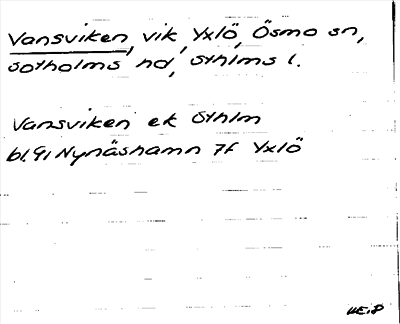 Vansviken, vik, Yxlö, Ösmo sn,
Sotholms hd, Sthlms l.
Vansviken ek Sthlm
bl.91 Nynäshamn 7f Yxlö